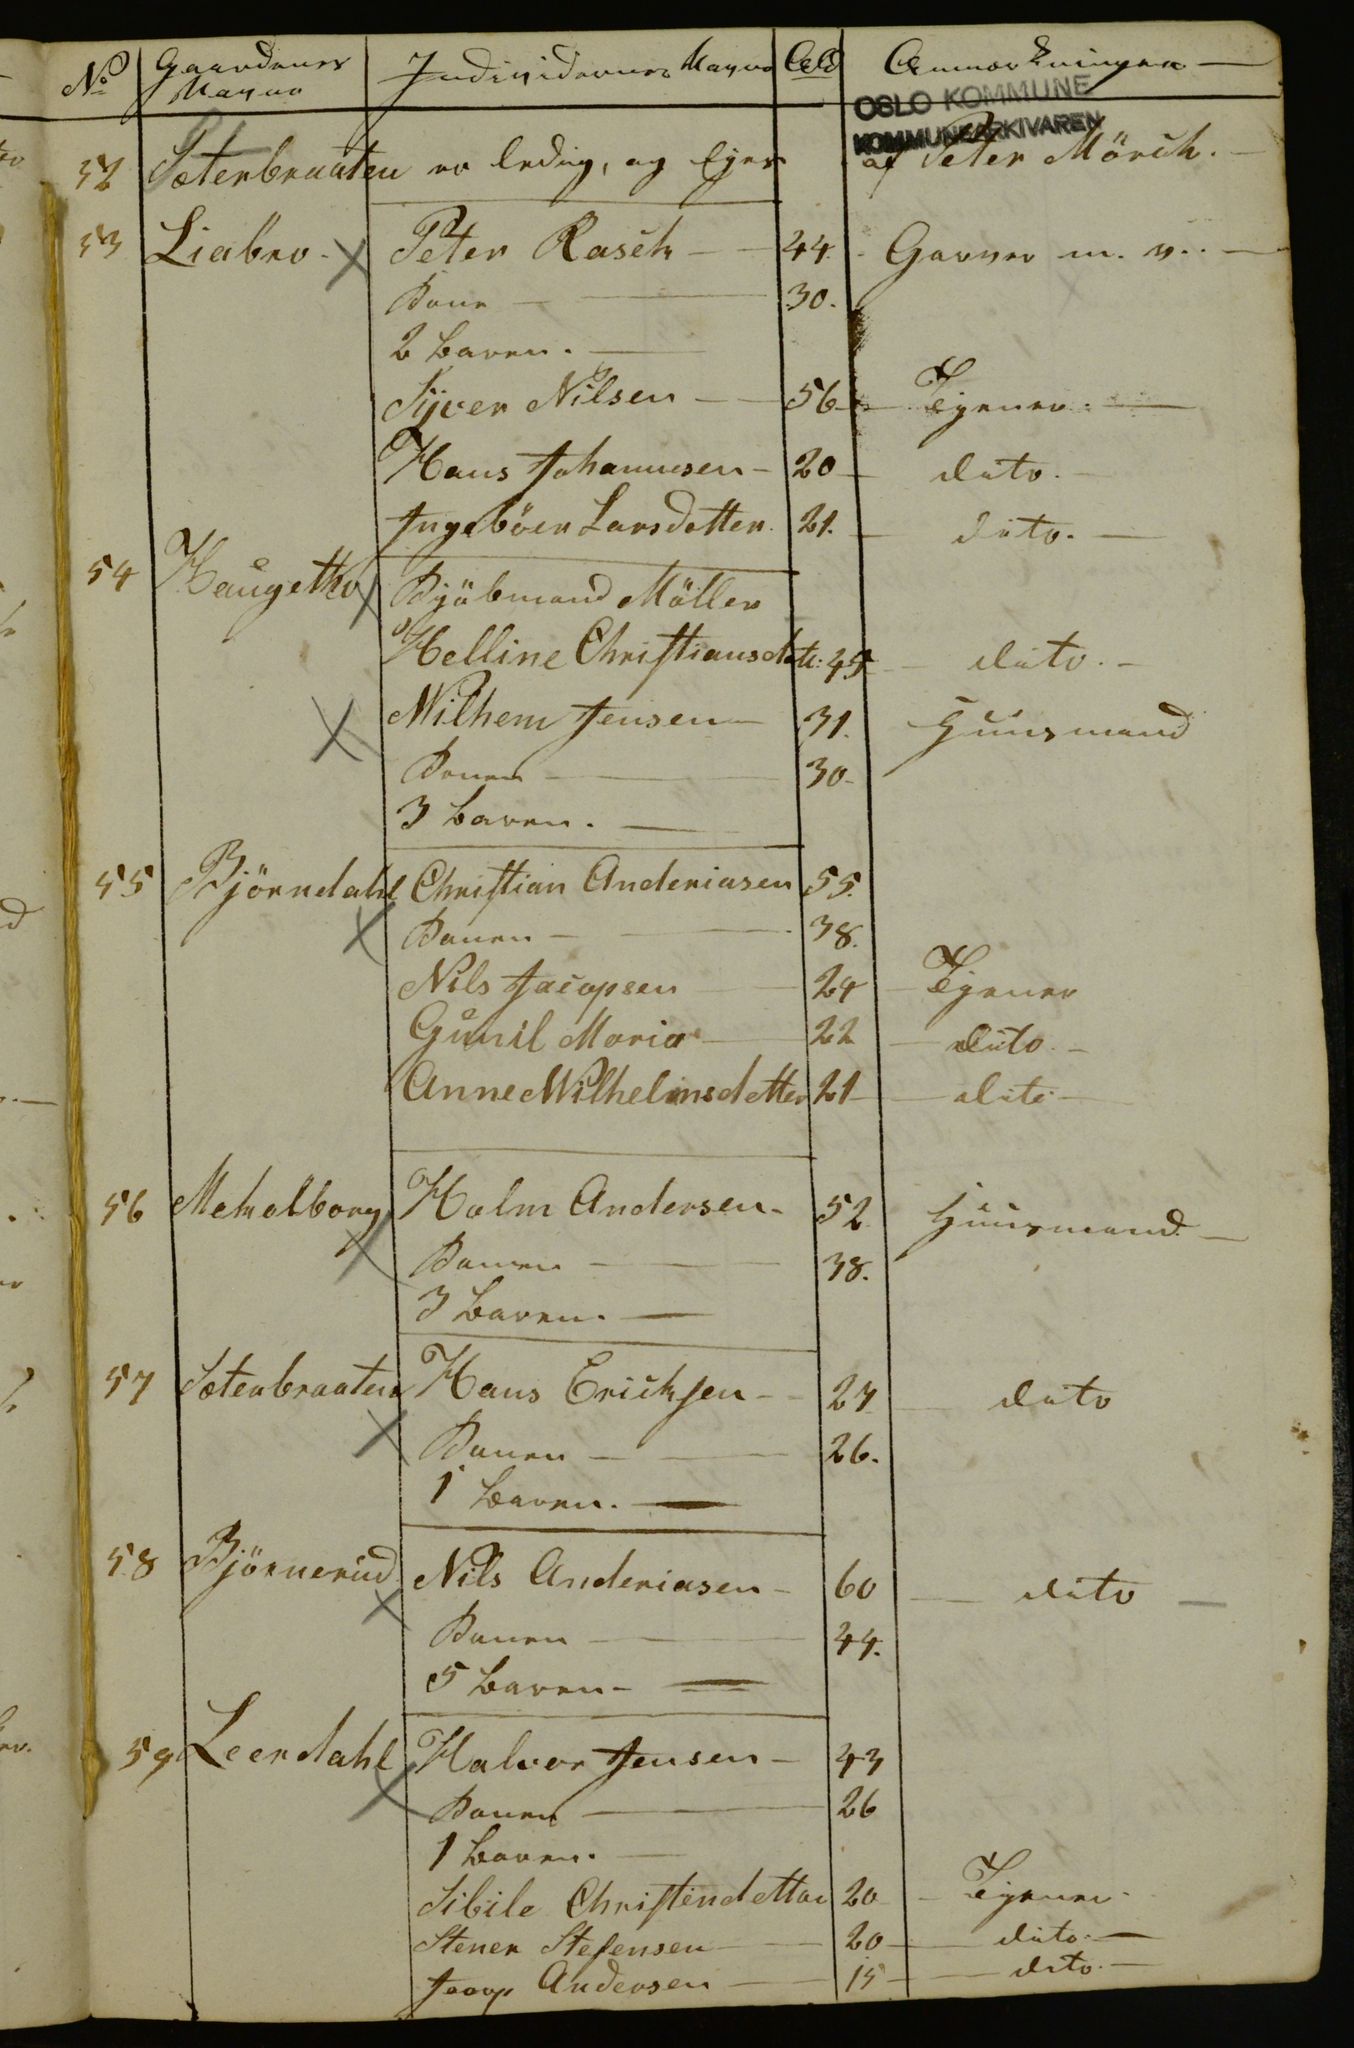 No Gaardenes Navne Individernes Navne Ald Anmærkninger
OSLO KOMMUNE
KOMMUNEARKIVAREN
52 Sæterbraaten er ledig, og Ejes af Peter Mörch.
53 Liabro Peter Rasch 44. Garver m. v.
Kone 30.
2 Børn.
Syver Nilsen 56 Tjener
Hans Johannesen 20 dito.
Ingeböer Larsdatter 21. dito.
54 Haugetho Kjöbmand Möller
Helline Christiansdatr: 45 dito.
Wilhem Jensen 31. Huusmand
Konen 30
3 Børn.
55 Björndahl Christian Anderiasen 55.
Konen 38.
Nils Jacopsen 24 Tjener
Gunil Maria 22 dito
Anne Wilhelmsdatter 21 dito
56 Holm Andersen 52 Huusmand
Konen 38.
3 Børn.
57 Sæterbraaten Hans Ericksen 27 dito
Konen 26.
1 Børn.
58 Björnerud Nils Anderiasen 60 dito
Konen 44.
5 Børn
59 Leerdahl Halvor Jensen 43
Konen 26
1 Børn.
Sibile Christendatter 20 Tjener
Stener Stefensen 20 dito
Andersen 15 dito